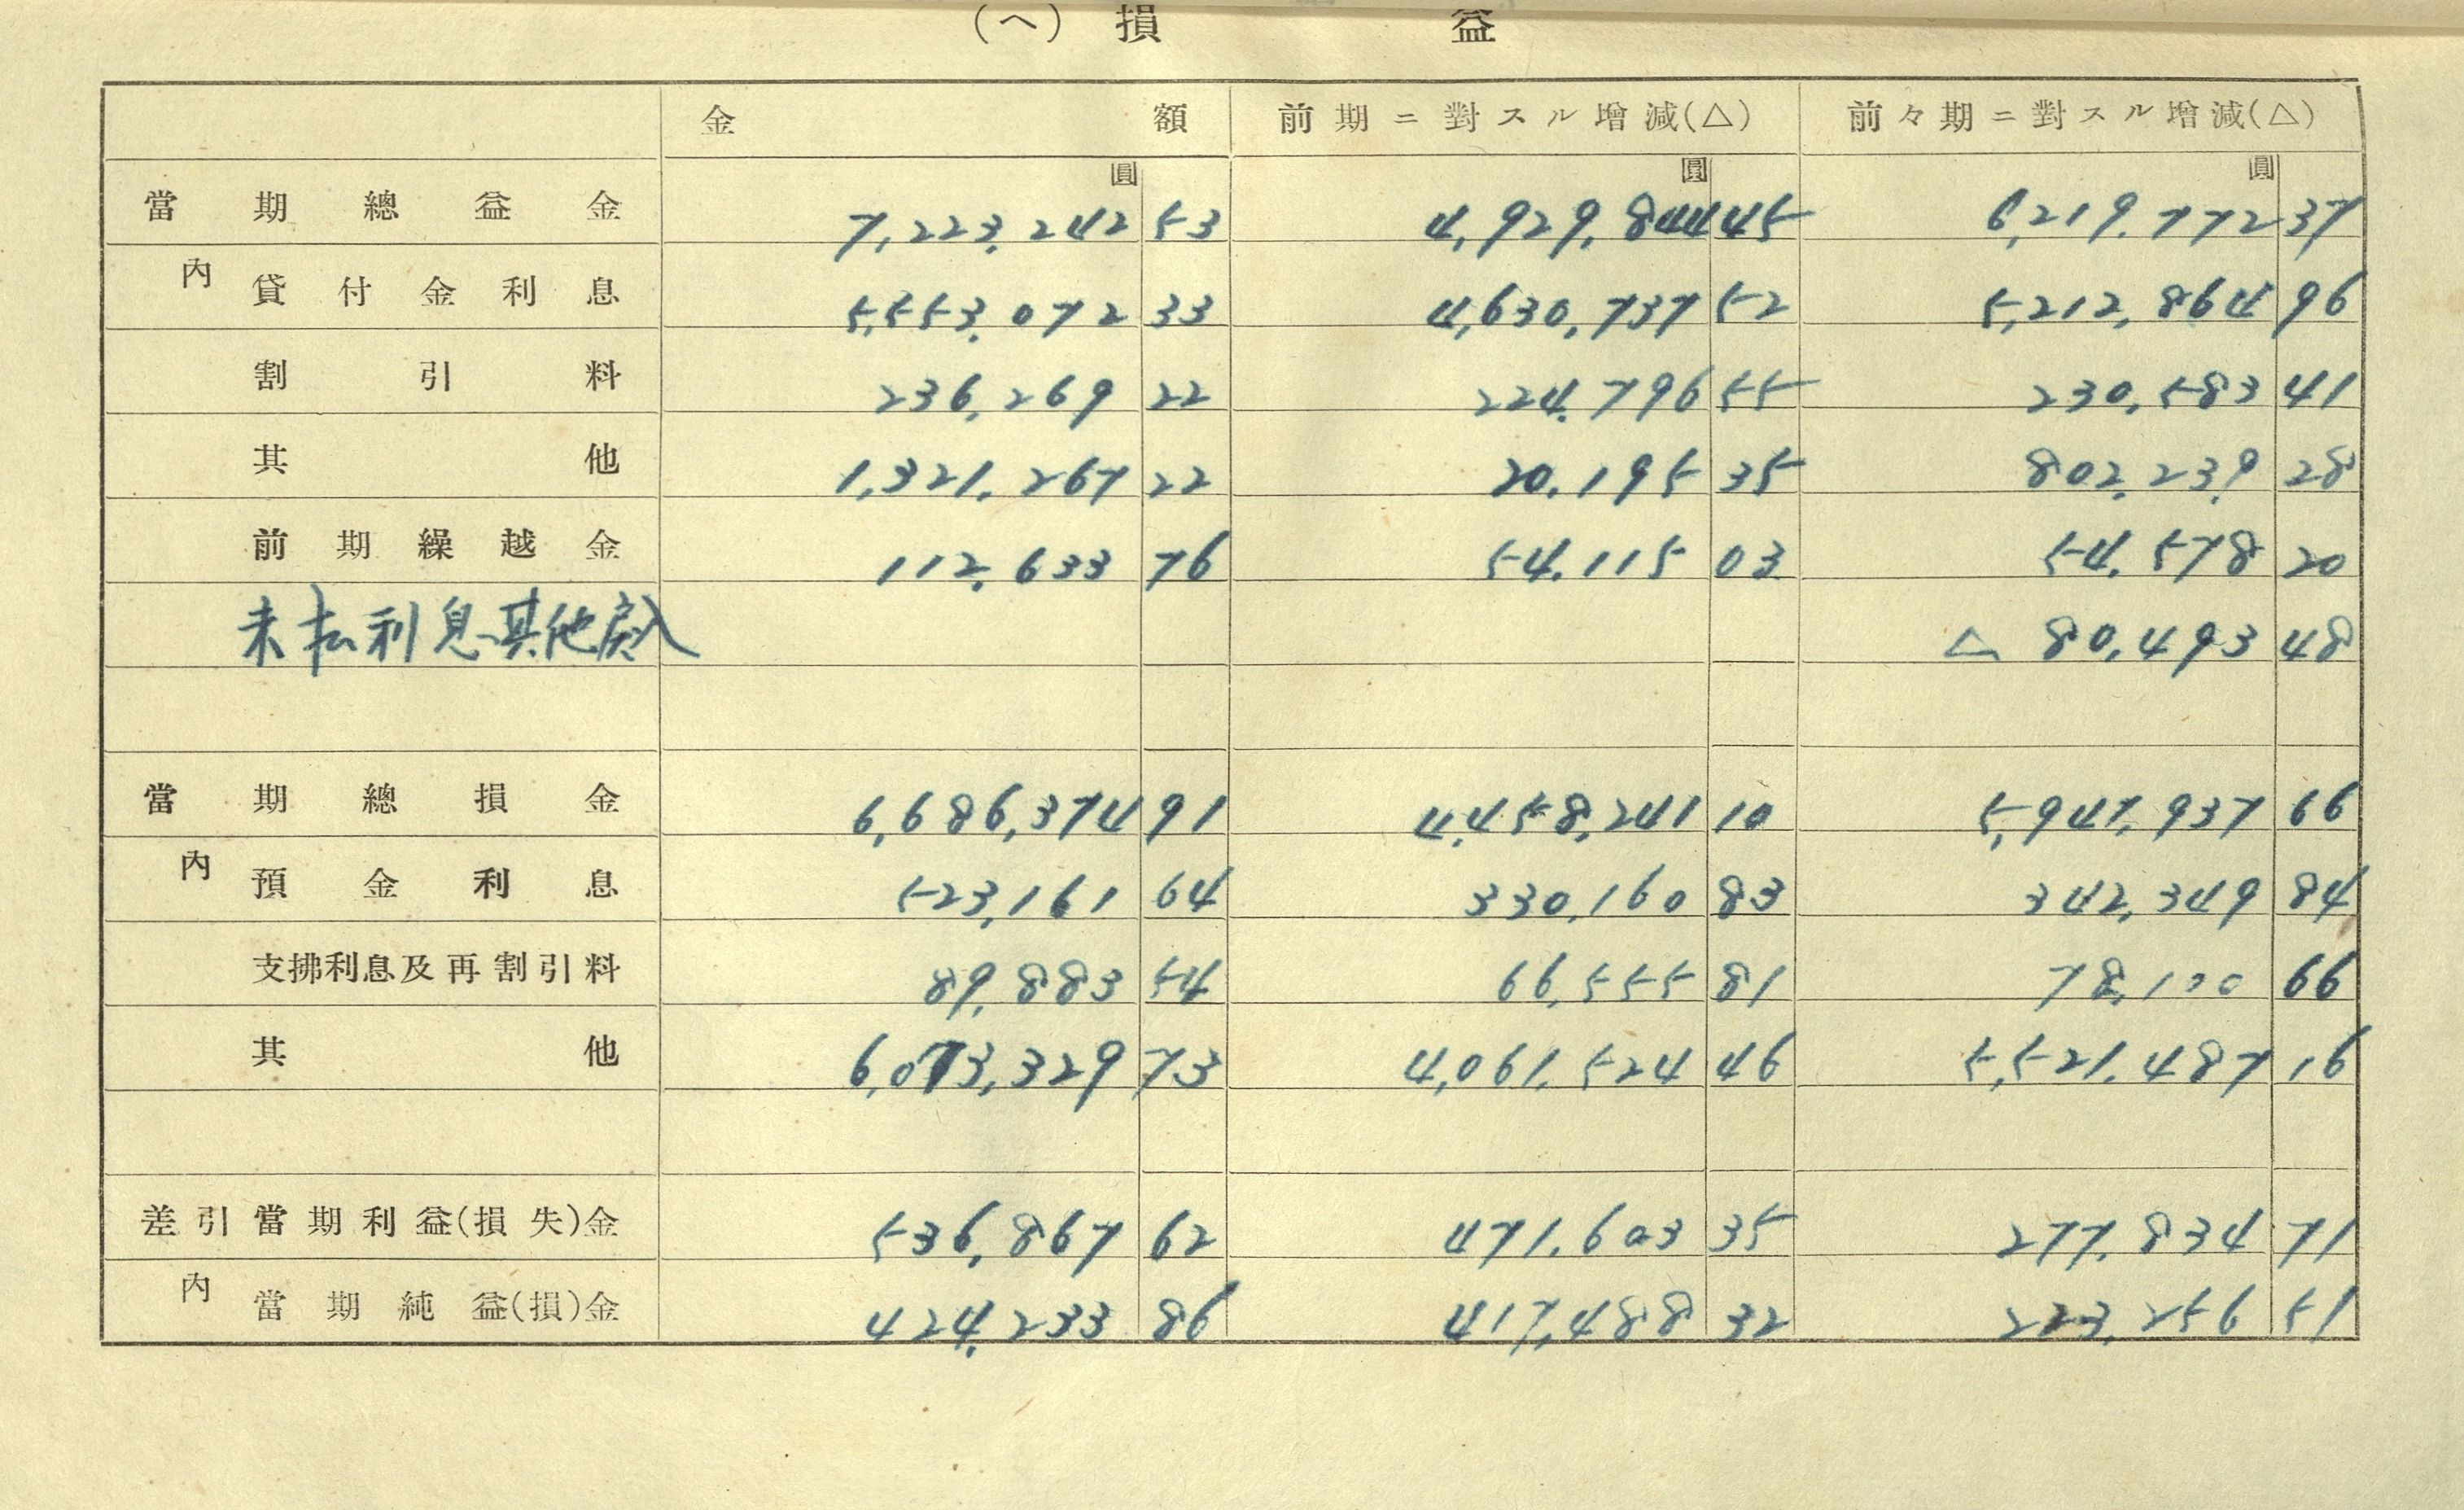 (ヘ) 損 益
金額 前期ニ對スル増減(△) 前々期ニ對スル増減(△)
圓 圓 圓
當期總益金 7,223,242 53 4,929,844 45 6,219,772 37
内 貸付金利息 5,553,072 33 4,630,737 52 5,212,864 96
割引料 236,269 22 224,796 55 230,583 41
其他 1,321,267 22 20,195 35 802,239 28
前期繰越金 112,633 76 54,115 03 54,578 20
未払利息其他戻入 △ 80,493 48
當期總損金 6,686,374 91 4,458,241 10 5,941,937 66
内 預金利息 523,161 64 330,160 83 342,349 84
支拂利息及再割引料 89,883 54 66,555 81 78,100 66
其他 6,073,329 73 4,061,524 46 5,521,487 16
差引當期利益(損失)金 536,867 62 471,603 35 277,834 71
内 當期純益(損)金 424,233 86 417,488 32 223,256 51